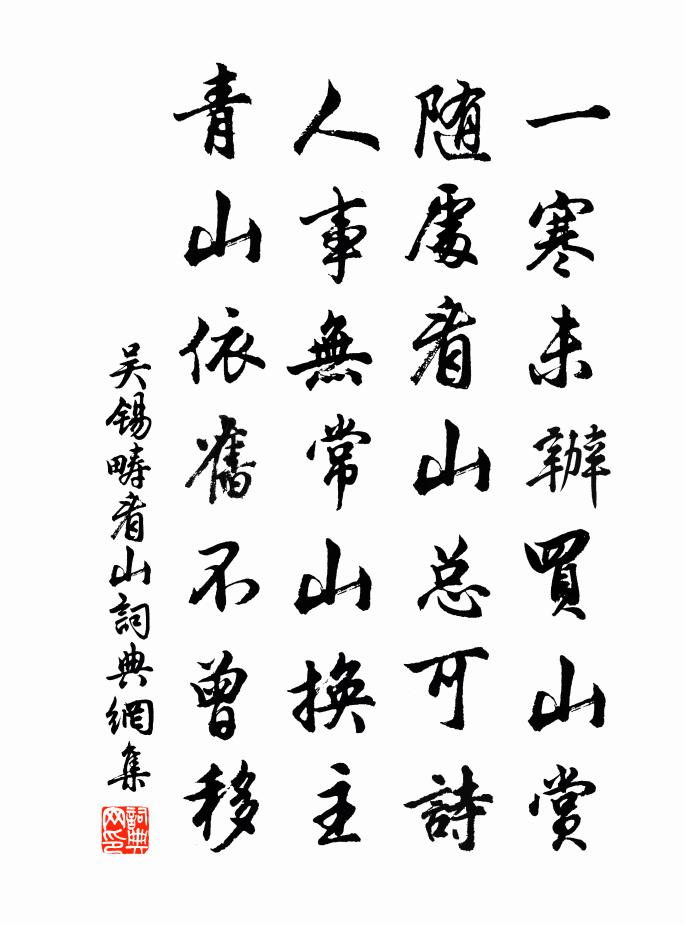 一寒未辦買山賞
随處看山總可詩
人事無常山換主
青山依舊不曾移
吴錫疇看山詞典網集
詞典网印